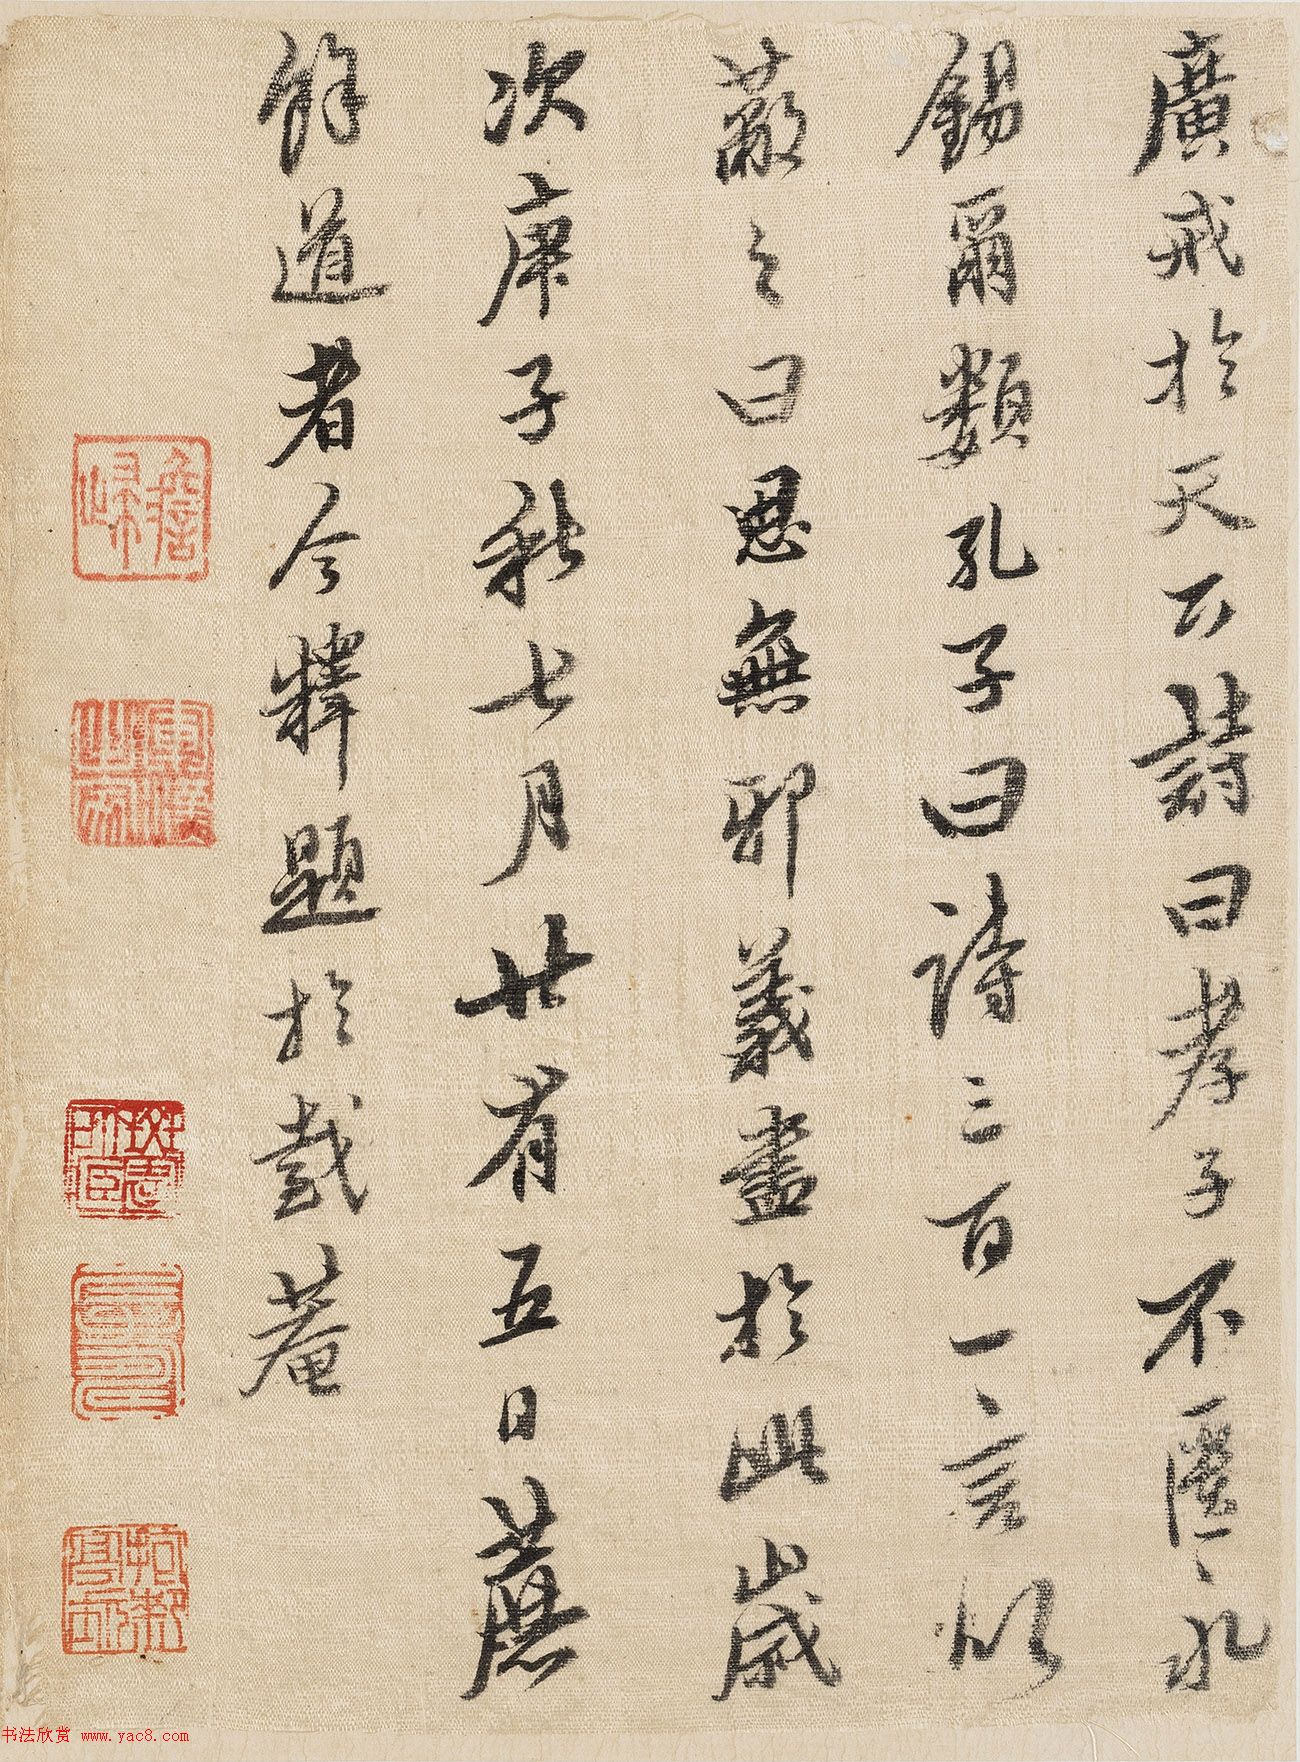 廣戒於天下詩曰孝子不匱永
錫爾類孔子曰詩三百一言以
蔽之曰思無邪義盡於此歲
次庚子秋七月廿有五日蔗
餘道者今釋題於載菴
澹歸
书法欣赏 www.yac8.com